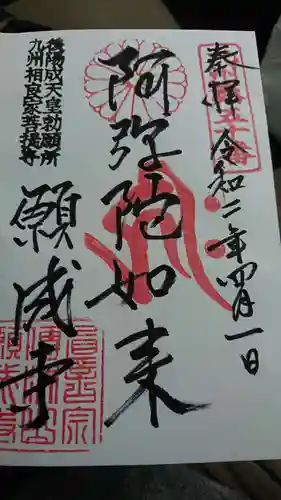 奉拝 令和二年四月一日
阿弥陀如来
後陽成天皇勅願所
九州相良家菩提寺
願成寺